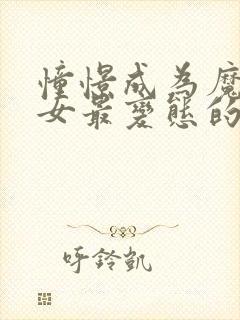 憧憬成为魔
女最变态的
呼铃凯